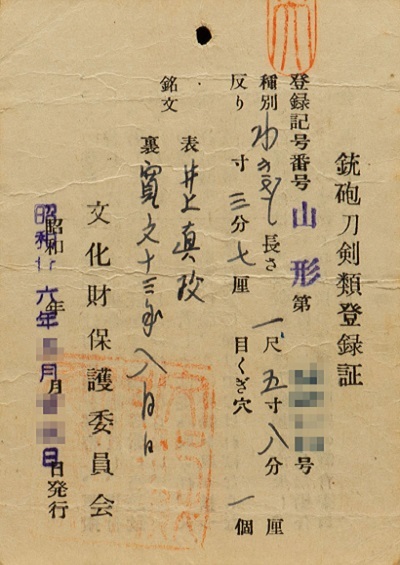 銃砲刀剣類登録証
登録記号番号 山形 第 号
種別 わきざし 長さ 一尺五寸八分 厘
反り 寸三分七厘 目くぎ穴 一個
銘文 表 井上真改
裏 寛文十三年八月日
文化財保護委員会
昭和 六年 月 日発行